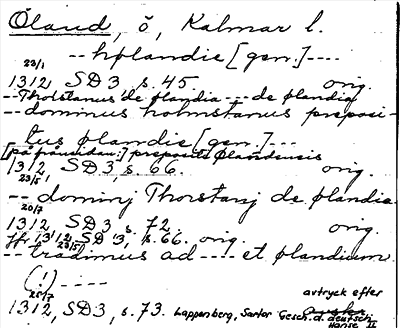 Öland, ö, Kalmar l.
-- hølandie [gen.] ----
23/1
1312, SD 3, s. 45. orig.
-- Tholstanus de ølandia --- de ølandia
-- dominus holmstanus preposi-
tus ølandie [gen.] ---
[på frånsidan:] prepositi Ølandensis
1312, SD 3, s. 66. orig.
23/5
-- dominj Thorstanj de ølandia
1312, SD 3, s. 72. orig.
20/7
1312, SD 3, s. 66. orig.
23/5
-- tradimus ad ---- et ølandium
(!) ----
avtryck efter
25/7
1312, SD 3, s. 73. Lappenberg, Sartor Gesch. d. deutsch.
Hanse II